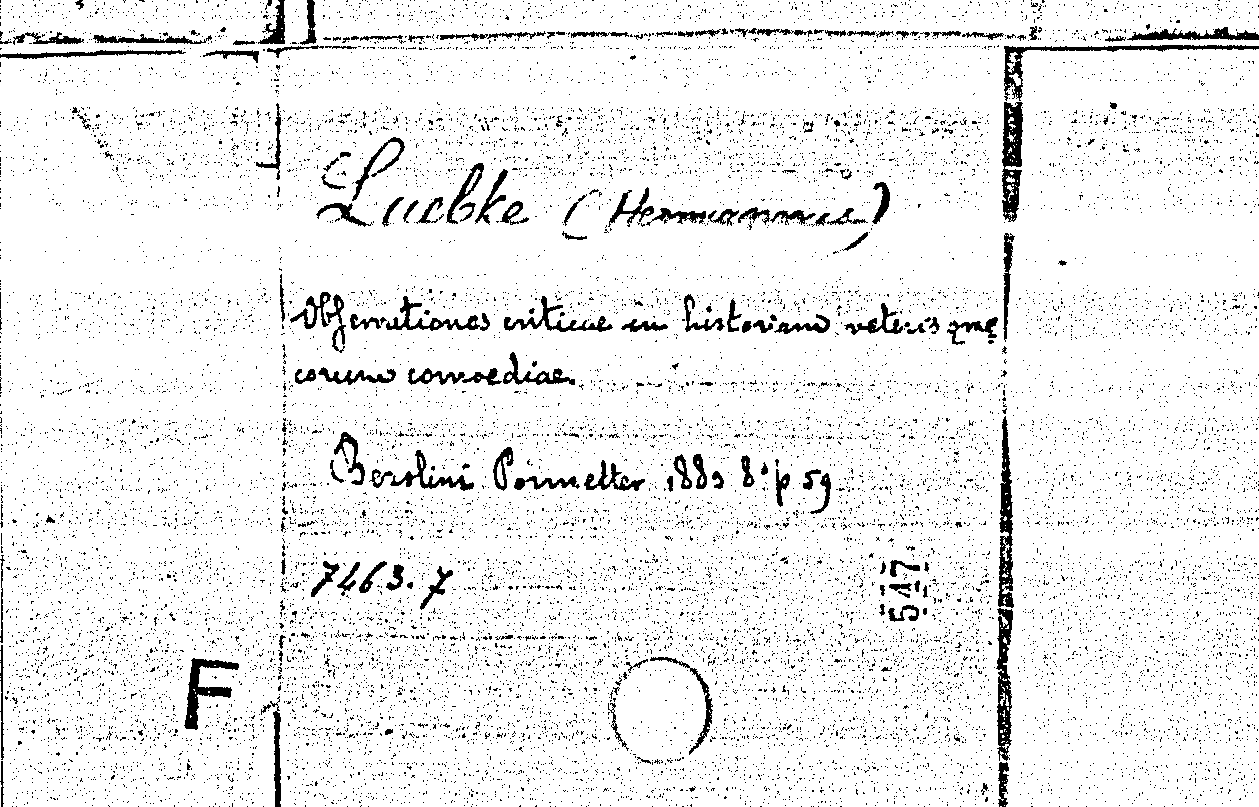 Luebke (Hermannus)
Observationes criticae in historiam veteris græ
corum comoediae.
Berolini Pormetter 1883 8° p 59
7463. 7
547
F